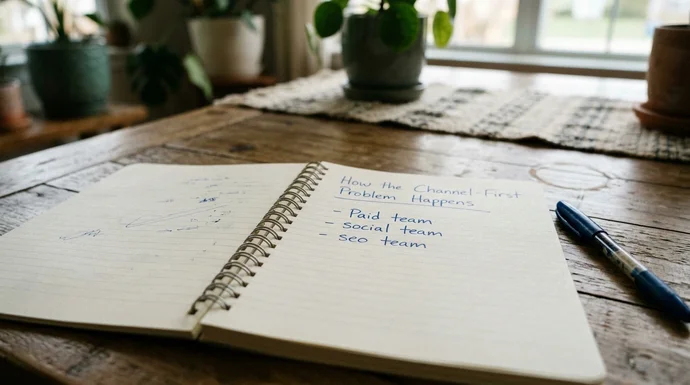 How the Channel-First
Problem Happens
- Paid team
- social team
- seo team